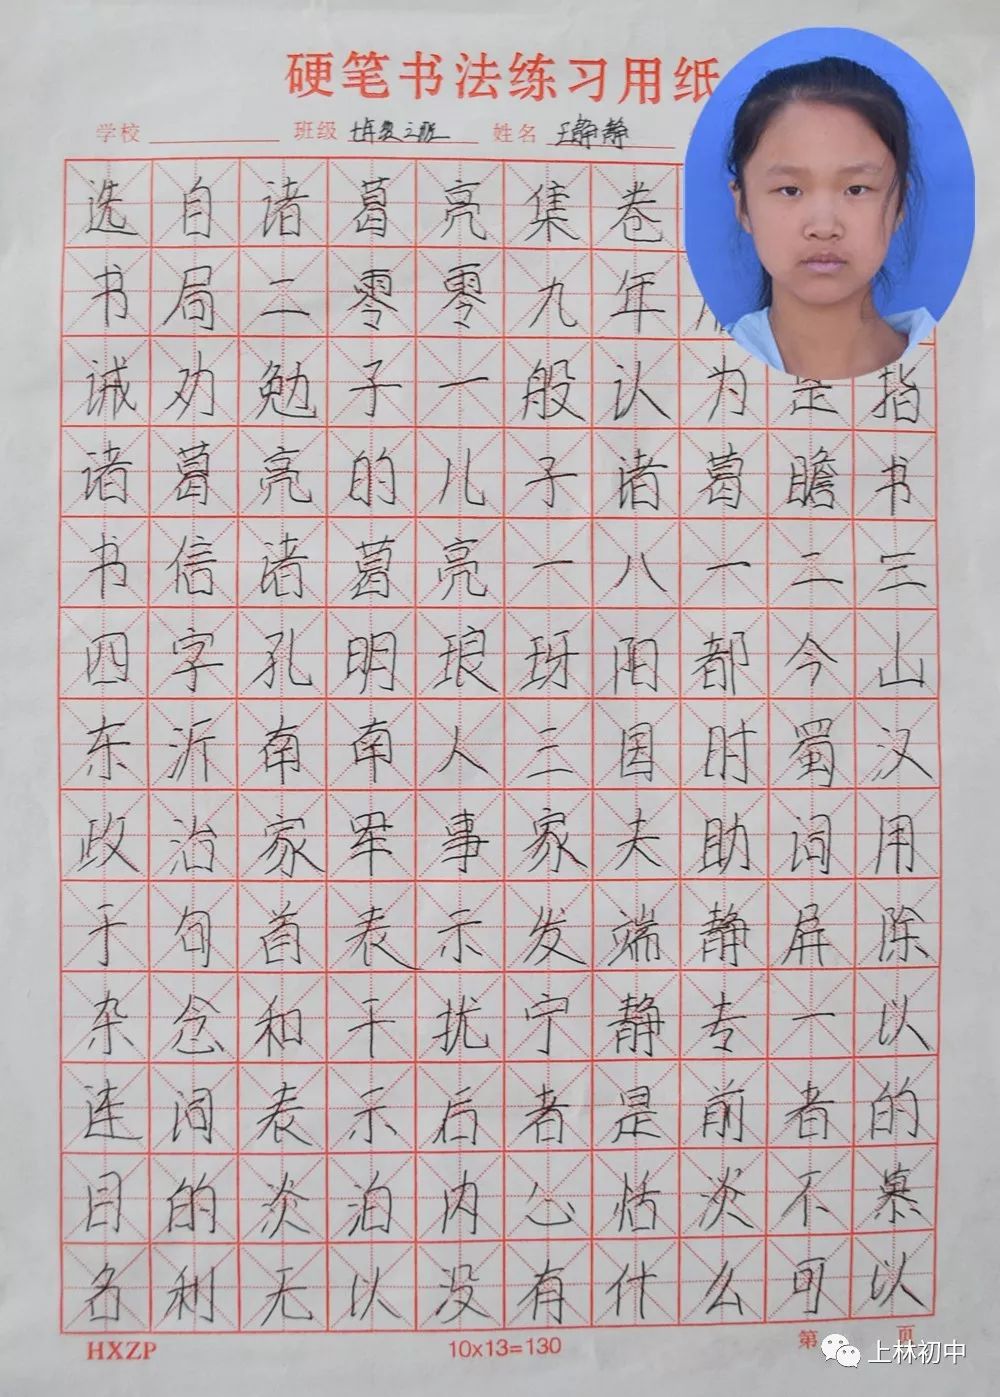 硬笔书法练习用纸
学校 班级 七年级三班 姓名 王静静
选自诸葛亮集卷
书局二零零九年
诫劝勉子一般认为是指
诸葛亮的儿子诸葛瞻书
书信诸葛亮一八一二三
四字孔明琅玡阳都今山
东沂南南人三国时蜀汉
政治家军事家夫助词用
于句首表示发端静屏除
杂念和干扰宁静专一以
连词表示后者是前者的
目的淡泊内心恬淡不慕
名利无以没有什么可以
HXZP 10x13=130 第 页
上林初中